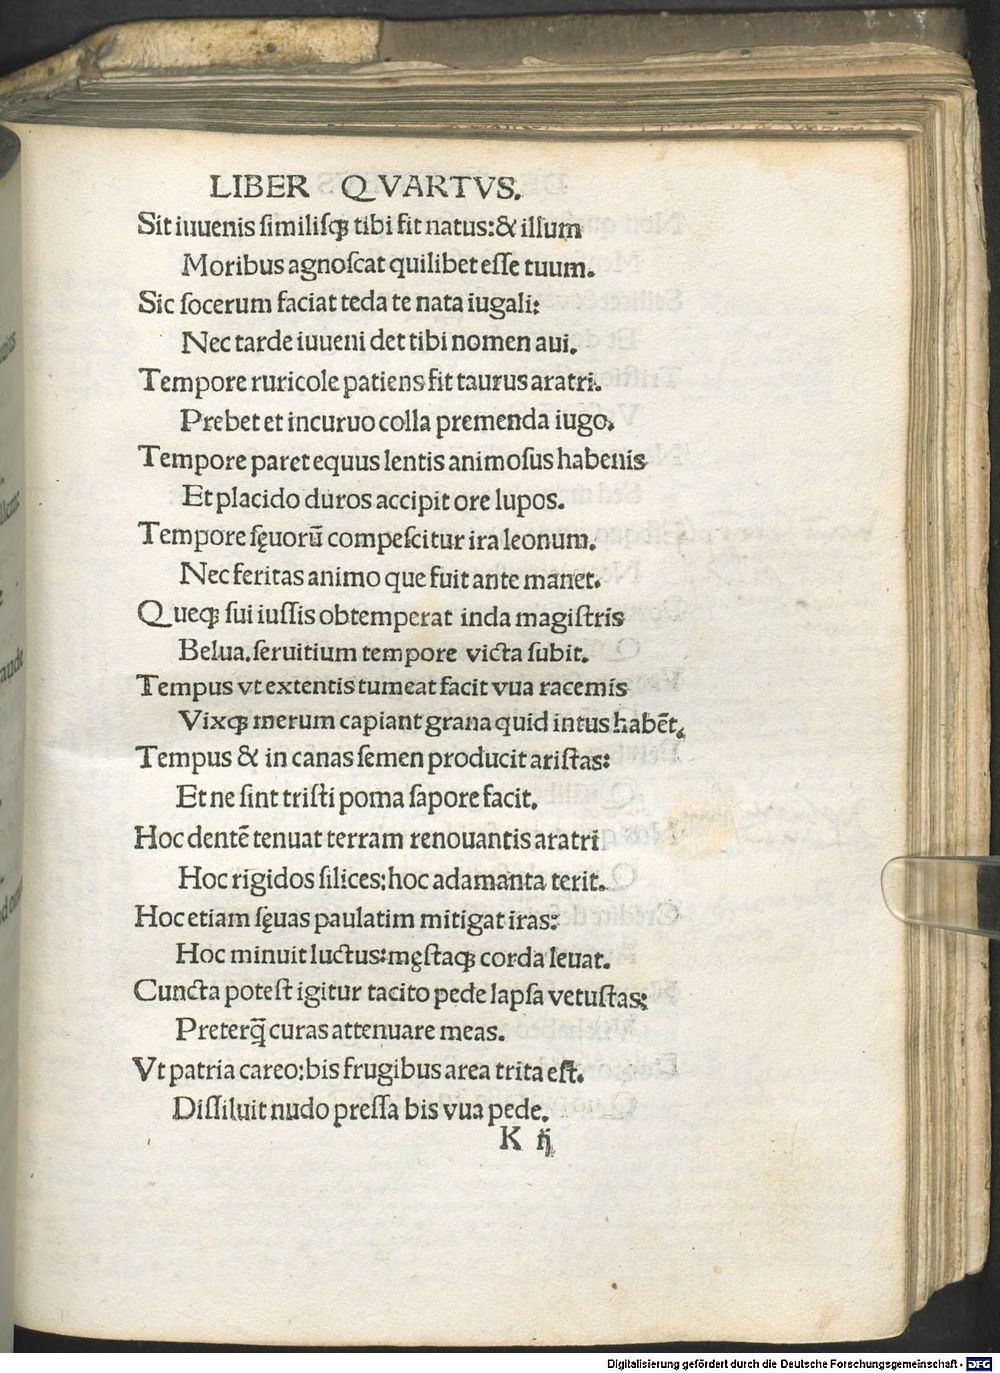 LIBER QVARTVS.
Sit iuuenis ſimiliſqꝫ tibi ſit natus:& illum
Moribus agnoſcat quilibet eſſe tuum.
Sic ſocerum faciat teda te nata iugali:
Nec tarde iuueni det tibi nomen aui.
Tempore ruricole patiens fit taurus aratri.
Prebet et incuruo colla premenda iugo.
Tempore paret equus lentis animoſus habenis
Et placido duros accipit ore lupos.
Tempore ſęuorū compeſcitur ira leonum.
Nec feritas animo que fuit ante manet.
Queqꝫ ſui iuſſis obtemperat inda magiſtris
Belua.ſeruitium tempore victa ſubit.
Tempus vt extentis tumeat facit vua racemis
Vixqꝫ merum capiant grana quid intus habēt.
Tempus & in canas ſemen producit ariſtas:
Et ne ſint triſti poma ſapore facit.
Hoc dentē tenuat terram renouantis aratri
Hoc rigidos ſilices:hoc adamanta terit.
Hoc etiam ſęuas paulatim mitigat iras:
Hoc minuit luctus:męſtaqꝫ corda leuat.
Cuncta poteſt igitur tacito pede lapſa vetuſtas:
Preterq̄ curas attenuare meas.
Vt patria careo:bis frugibus area trita eſt.
Diſſiluit nudo preſſa bis vua pede.
K ij